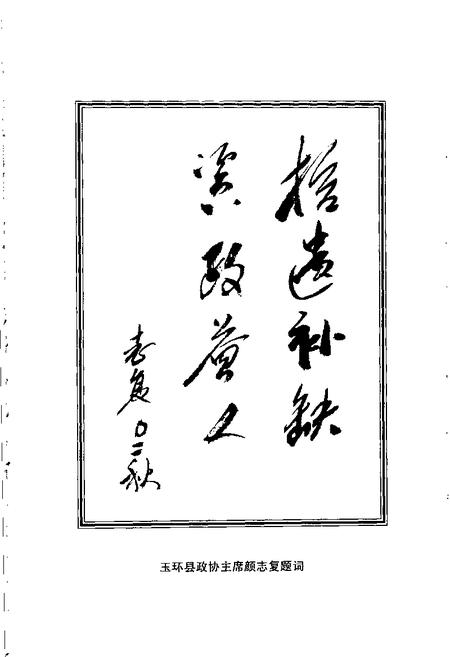 拾遗补缺
资政人
志复
〇二秋
玉环县政协主席颜志复题词